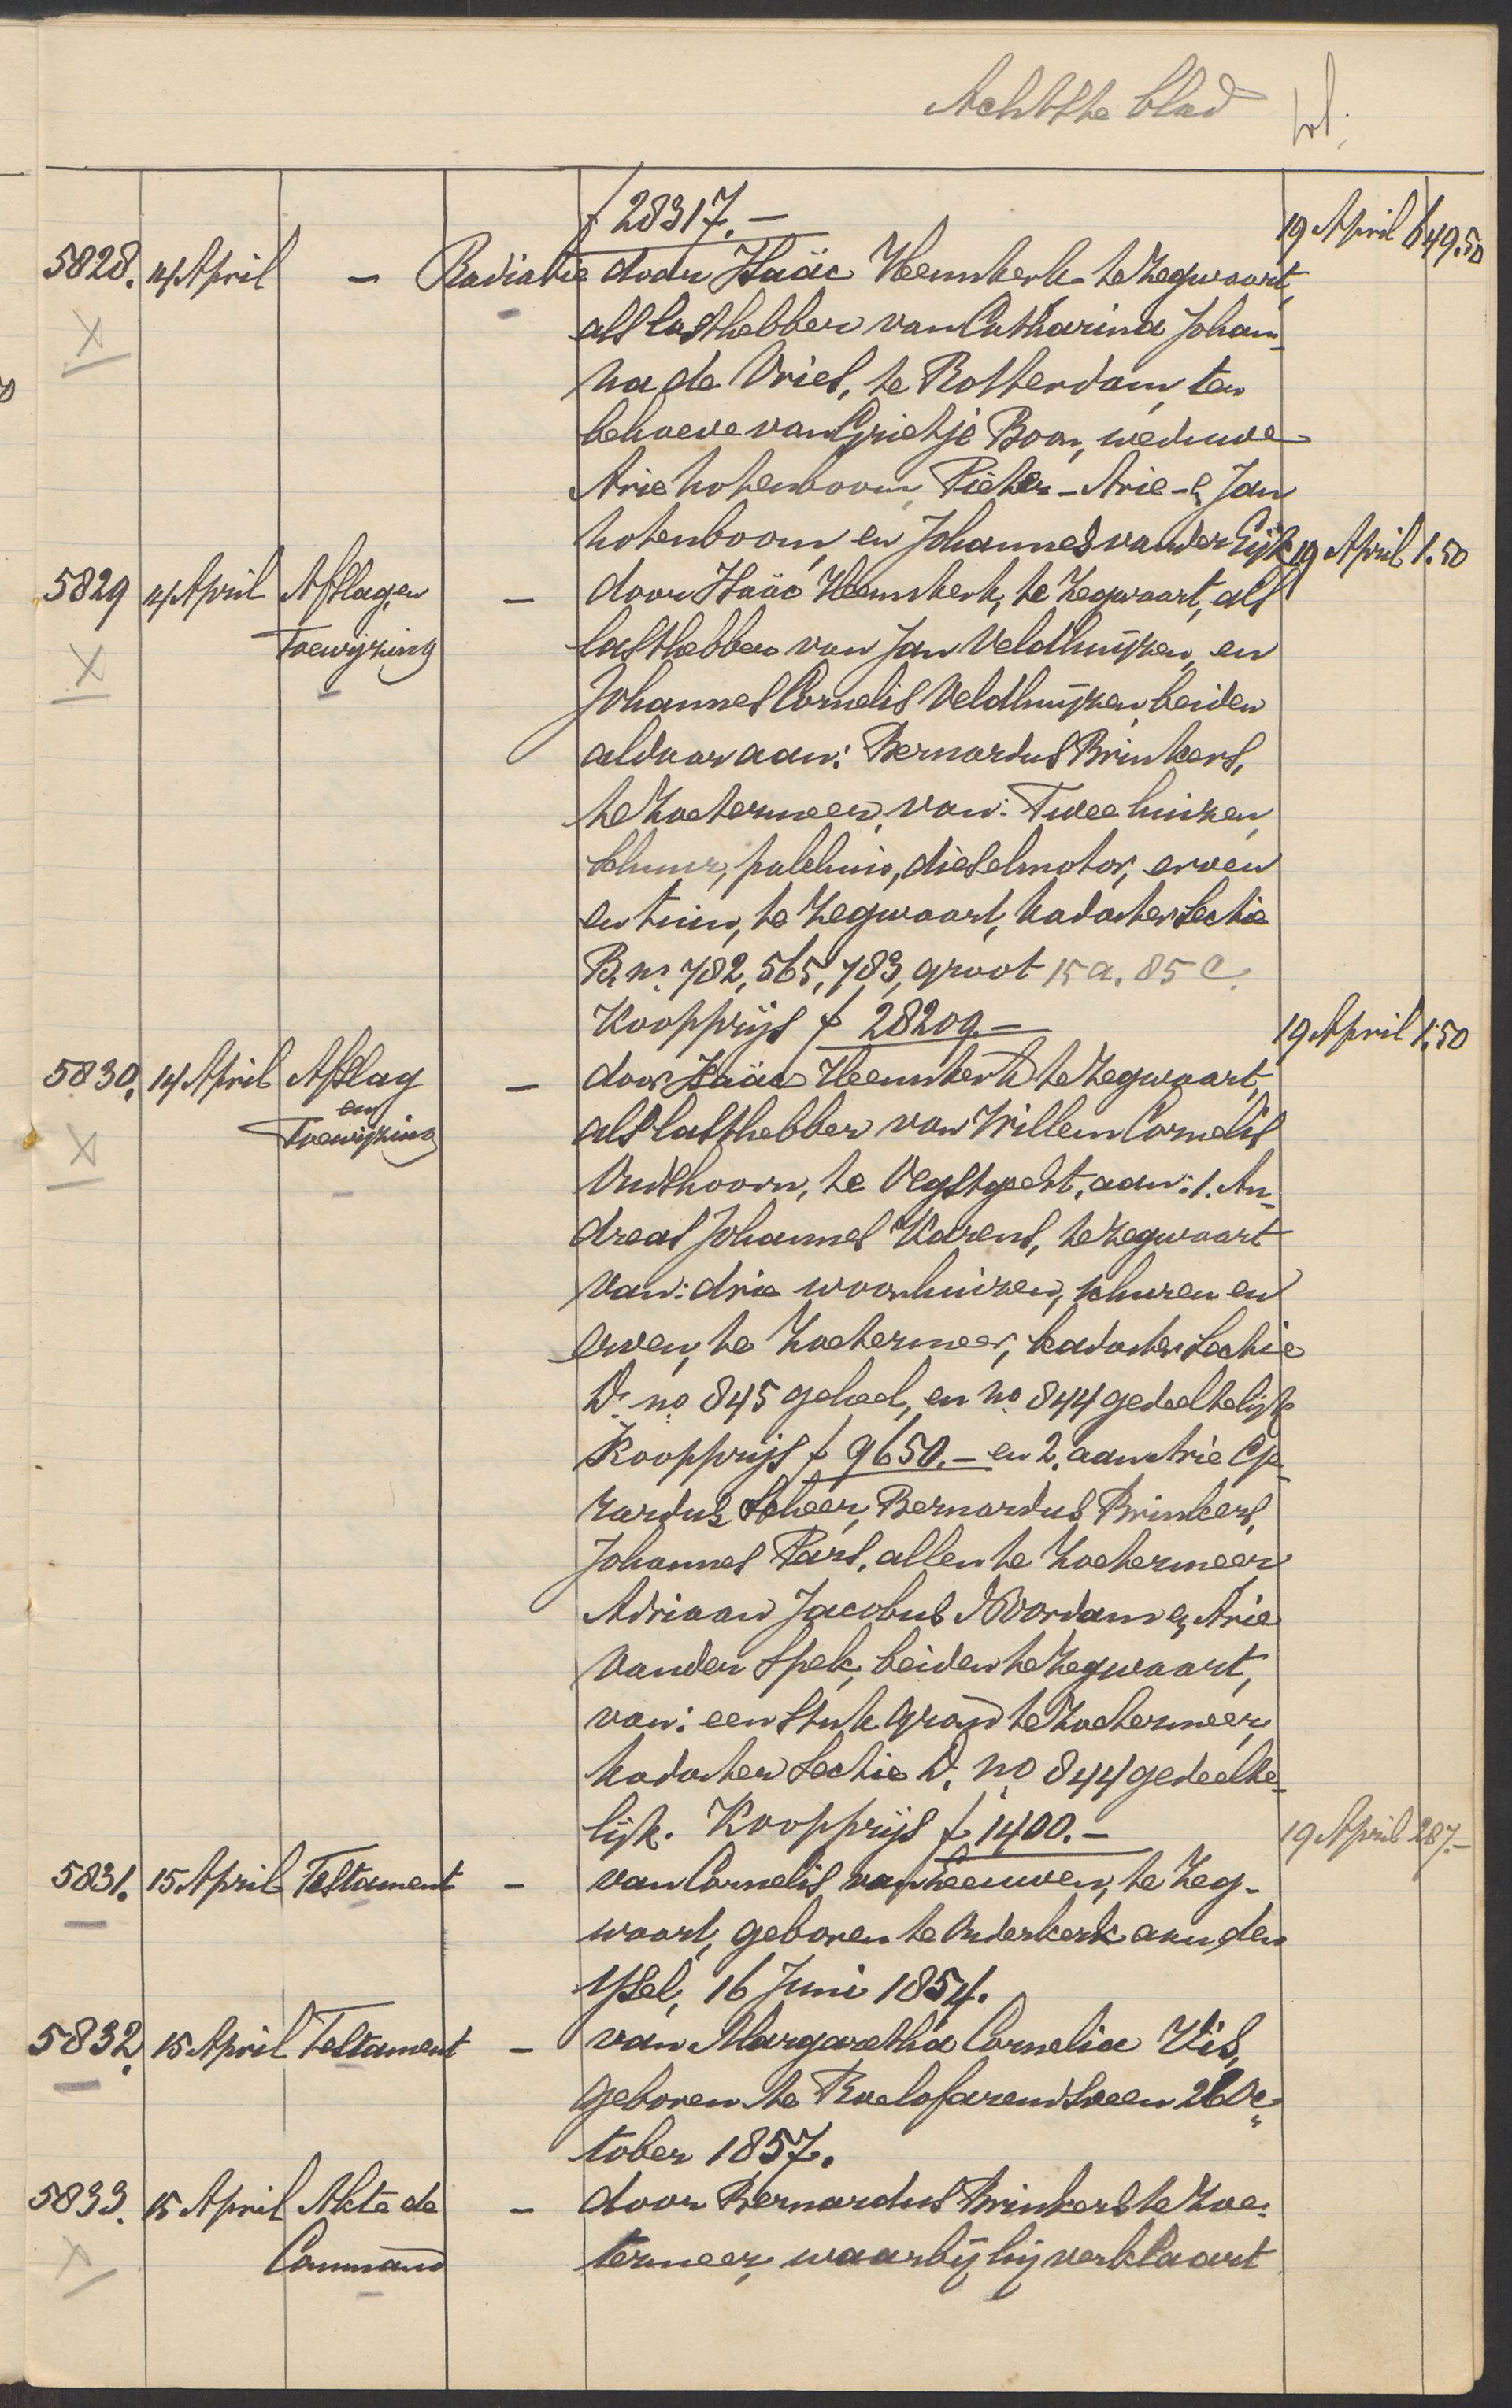 Achtste blad
f 28317.— 19 April 649.50
5828. 14 April — Radiatie door Isaäc Heemskerk te Zegwaart,
als lasthebber van Catharina Johan-
na de Vries, te Rotterdam, ten
behoeve van Grietje Boon, weduwe
Arie Notenboom, Pieter - Arie - & Jan
Notenboom, en Johannes van der Eijk 19 April 1.50
5829 14 April Afslag en — door Isaäc Heemskerk, te Zegwaart, als
Toewijzing lasthebber van Jan Veldhuijzen, en
Johannes Cornelis Veldhuijzen, beiden
aldaar aan: Bernardus Brinkers,
te Zoetermeer, van: Twee huizen,
schuur, pakhuis, dieselmotor, erven
en tuin, te Zegwaart, kadaster Sectie
B. nos. 782, 565, 783, groot 15 a. 85 c.
Koopprijs f 28209.— 19 April 1.50
5830. 14 April Afslag — door Isaäc Heemskerk te Zegwaart,
en
Toewijzing als lasthebber van Willem Cornelis
Oudshoorn, te Oegstgeest, aan: 1. An-
dreas Johannes Karens, te Zegwaart
van: drie woonhuizen, schuren en
erven, te Zoetermeer, kadaster Sectie
D. no 845 geheel, en no. 844 gedeeltelijk
Koopprijs f 9650.— en 2. aan Arie Ge-
rardus Scheer, Bernardus Brinkers,
Johannes Pars, allen te Zoetermeer
Adriaan Jacobus Noordam & Arie
van der Spek, beiden te Zegwaart,
van: een stuk grond te Zoetermeer,
kadaster Sectie D. no 844 gedeelte-
lijk. Koopprijs f 1400.— 19 April 287.—
5831. 15 April Testament — van Cornelis van Leeuwen, te Zeg-
waart, geboren te Ouderkerk aan den
IJsel, 16 Juni 1854.
5832. 15 April Testament — van Margaretha Cornelia Vis,
geboren te Roelofarendsveen 26 Oc-
tober 1857.
5833. 15 April Akte de — door Bernardus Brinkers te Zoe-
Command termeer, waarbij hij verklaart